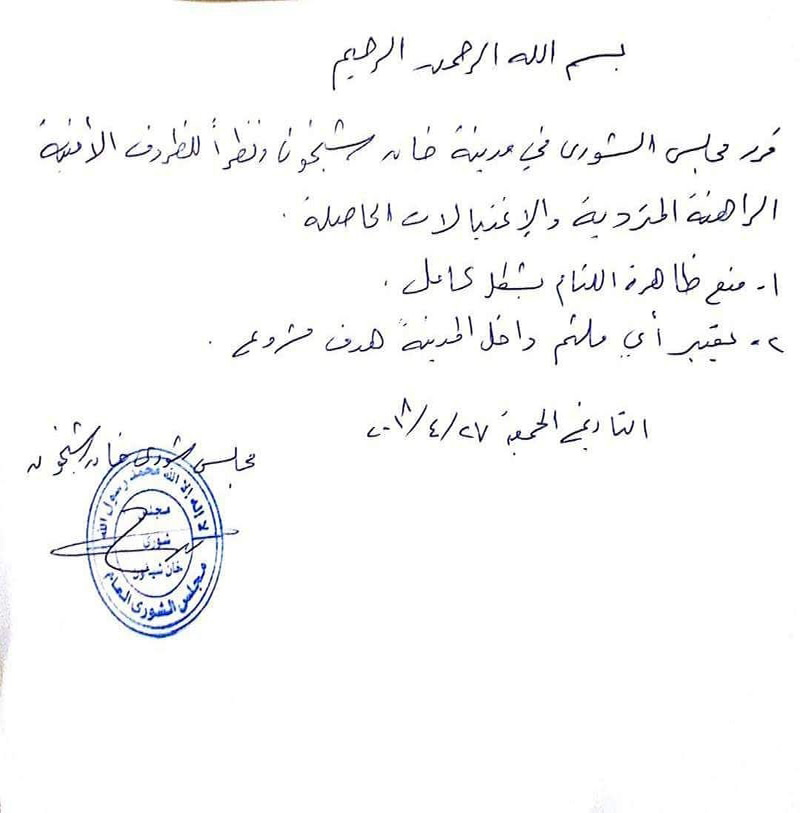 بسم الله الرحمن الرحيم
قرر مجلس الشورى في مدينة خان شيخون ونظراً للظروف الأمنية
الراهنة المتردية والإغتيالات الحاصلة .
١- منع ظاهرة اللثام بشكل كامل .
٢- يعتبر أي ملثم داخل المدينة هدف مشروع .
التاريخ الجمعة ٢٠١٨/٤/٢٧
مجلس شورى خان شيخون
لا إله إلا الله محمد رسول الله
مجلس
شورى
خان شيخون
مجلس الشورى العام